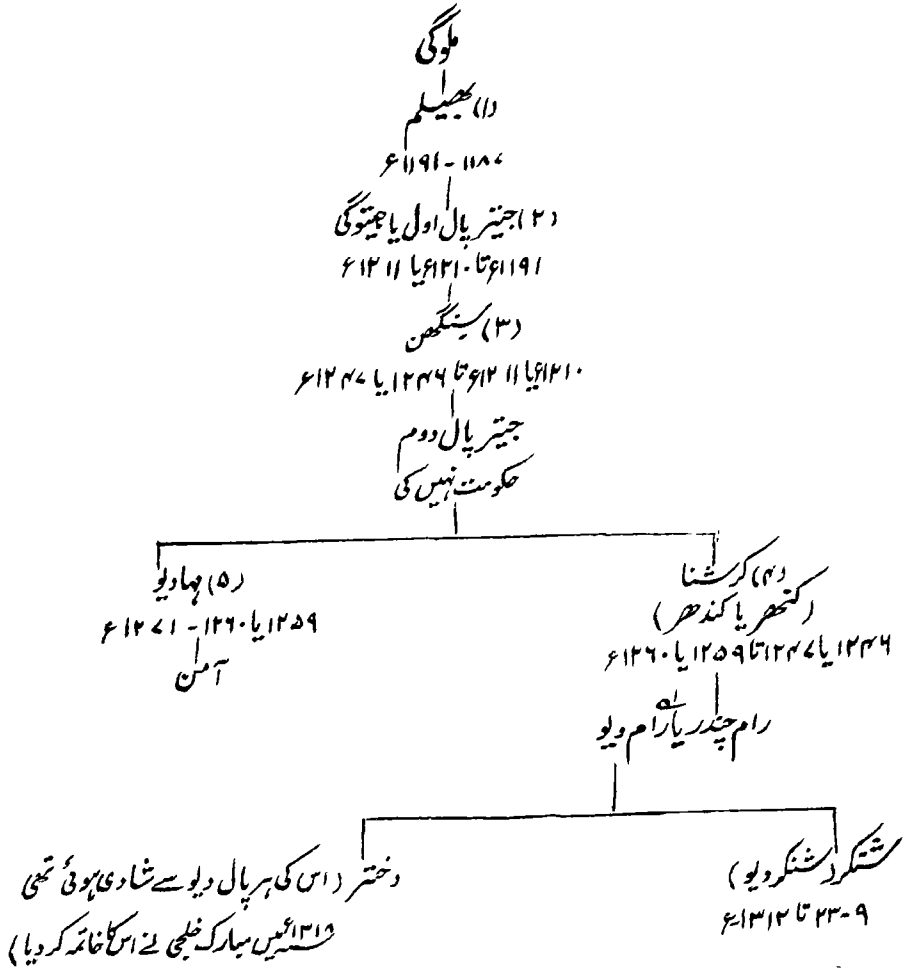 ملوگی
(۱) بھیلم
۱۱۸۷ - ۱۱۹۱ء
(۲) جیتر پال اول یا جیتوگی
۱۱۹۱ء تا ۱۲۱۰ء یا ۱۲۱۱ء
(۳) سینگھن
۱۲۱۰ء یا ۱۲۱۱ء تا ۱۲۴۶ یا ۱۲۴۷ء
جیتر پال دوم
حکومت نہیں کی
(۴) کرشنا
(کنھر یا کندھر)
۱۲۴۶ یا ۱۲۴۷ تا ۱۲۵۹ یا ۱۲۶۰ء
(۵) مہادیو
۱۲۵۹ یا ۱۲۶۰ - ۱۲۷۱ء
آمن
رام چندر یا رام دیو
شنکر (شنکر دیو)
۹-۲۳ تا ۱۳۱۲ء
دختر (اس کی ہرپال دیو سے شادی ہوئی تھی
میں مبارک خلجی نے اس کا خاتمہ کر دیا)